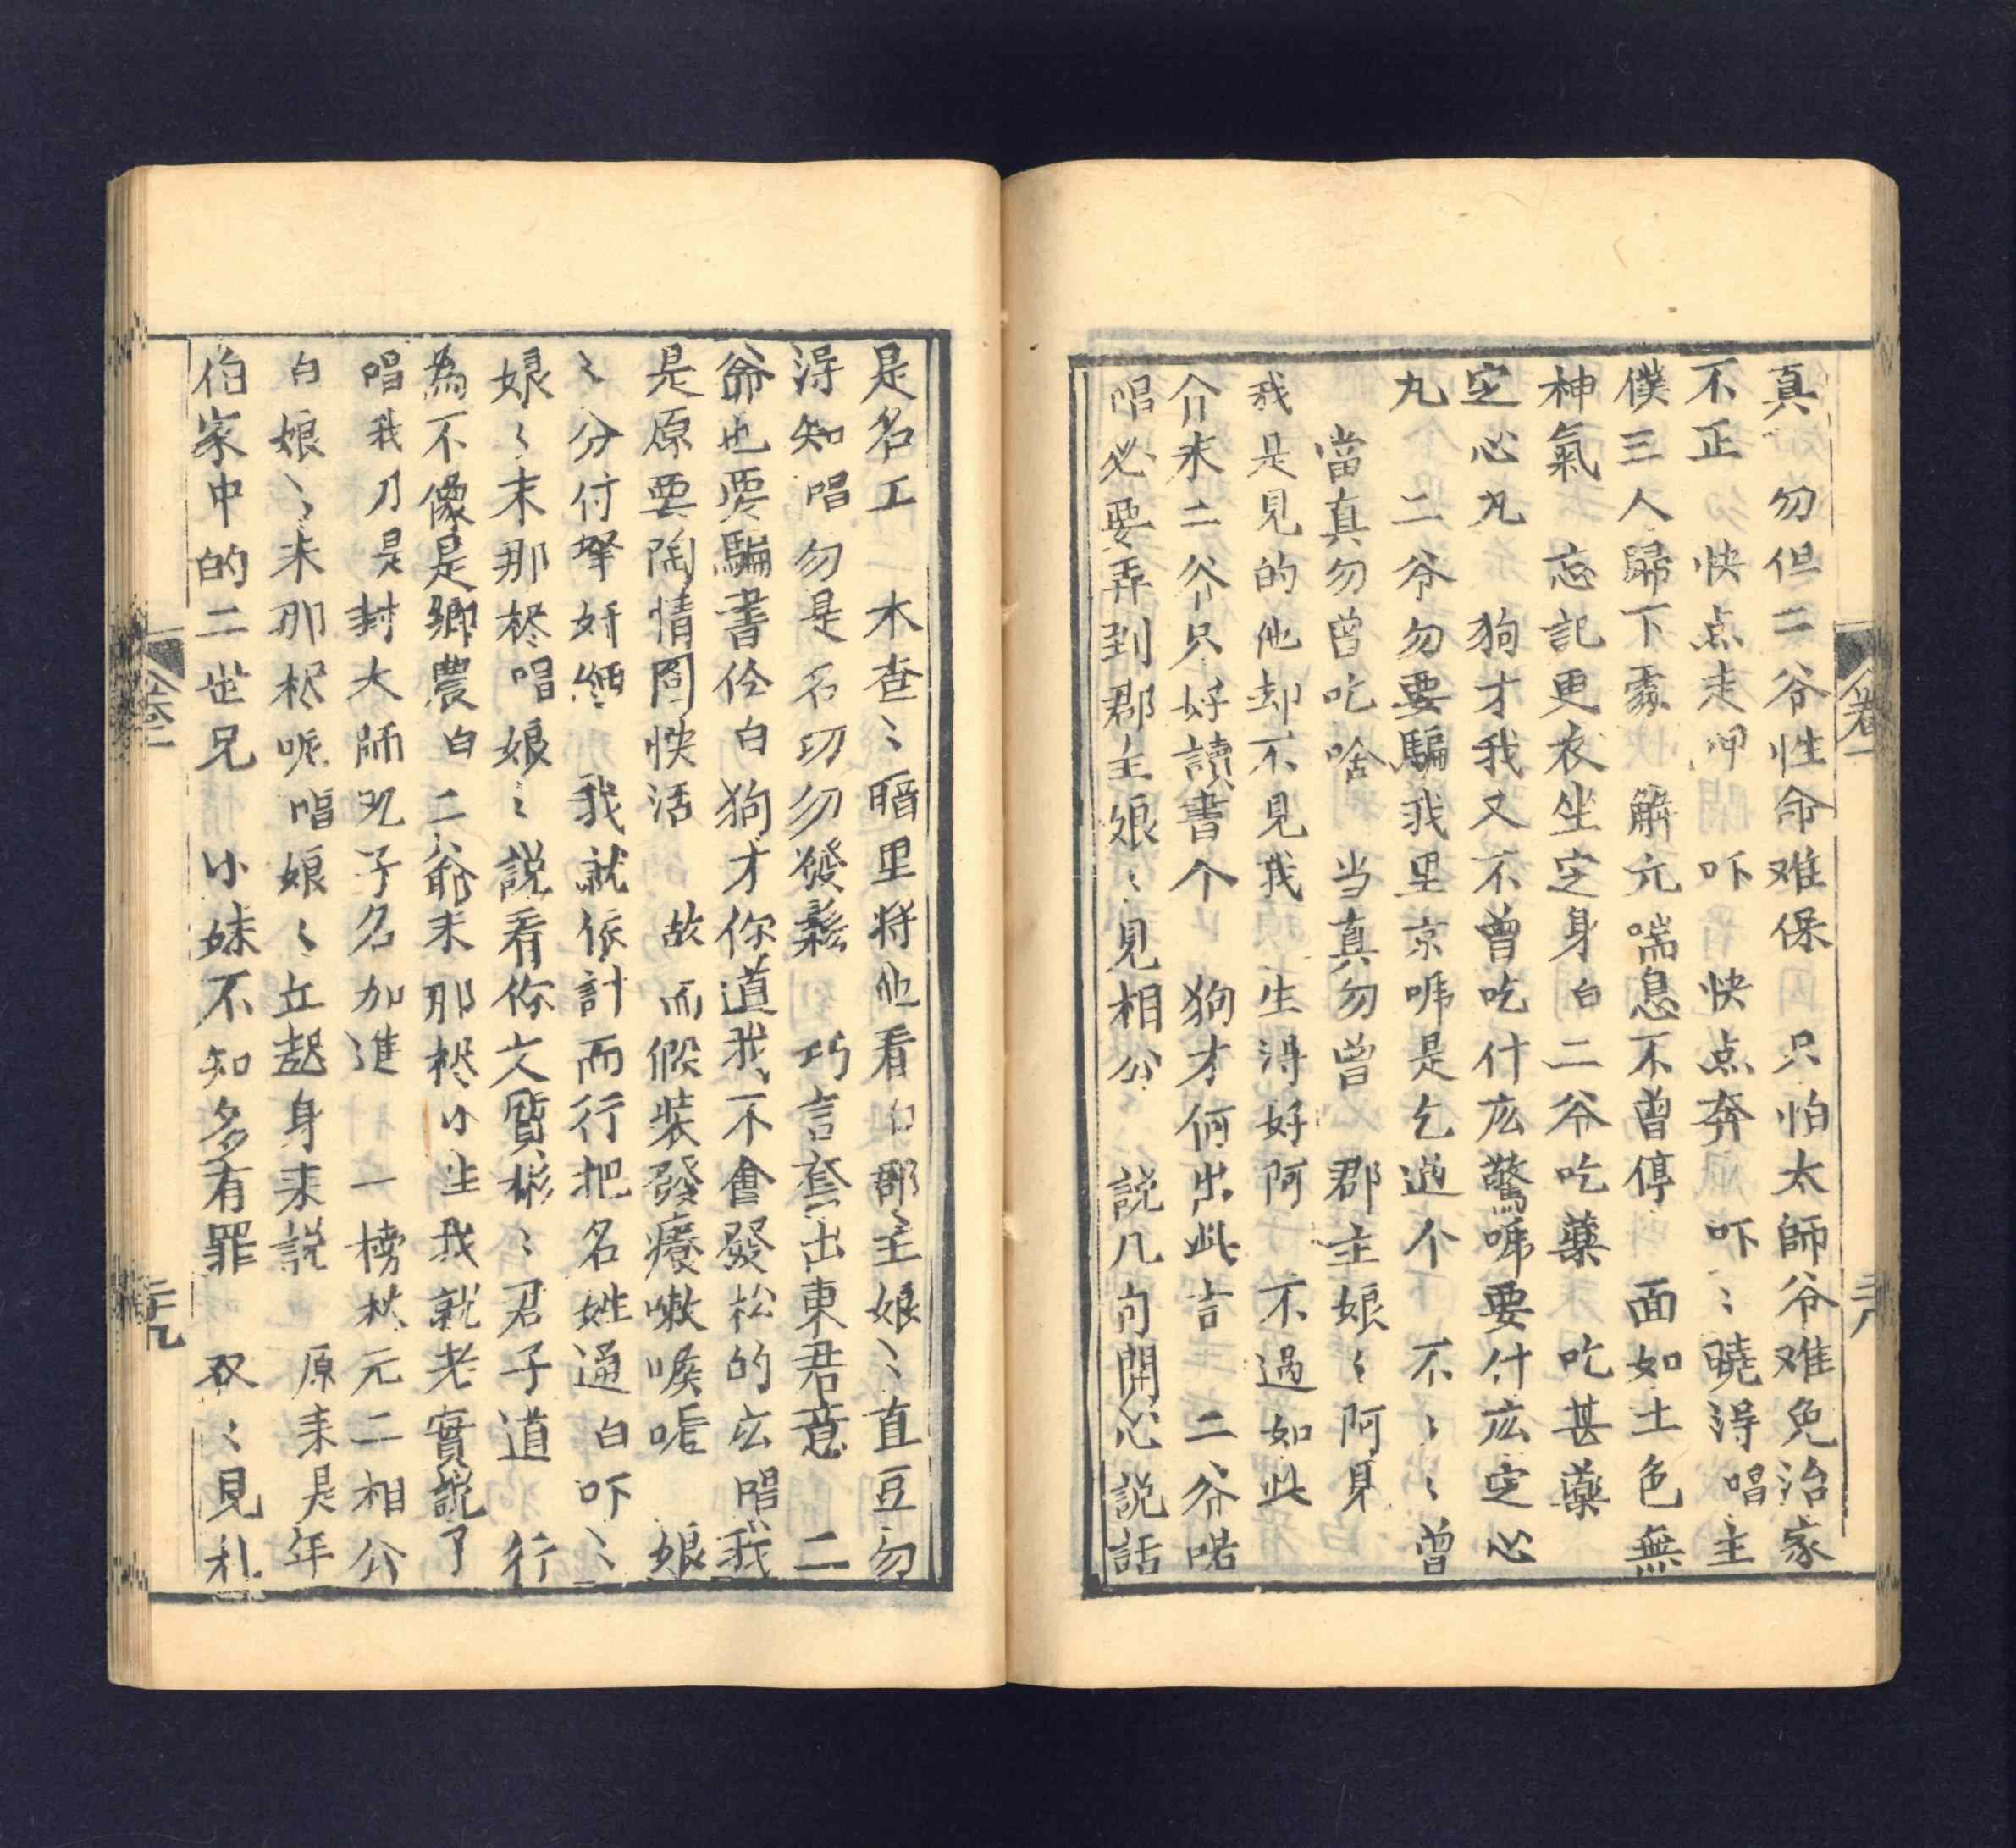 真勿但二爷性命难保 只怕太師爷难免治家
不正 快点走呷 吓 快点奔 吓〻曉得唱主
僕三人歸下處 解元喘息不曾停 面如土色無
神氣 忘記更衣坐定身白二爷吃藥 吃甚藥
定心丸 狗才我又不曾吃什庅驚嚈要什庅定心
丸 二爷勿要騙我里京嚈是乞过个 不〻〻曾
當真勿曾吃啥 当真勿曾 郡主娘〻阿見
我是見的他却不見我 生得好阿 不過如此
介末二爷只好讀書个 狗才何出此言 二爷喏
唱必要弄到郡主娘〻見相公 説几句開心説話
卷一
三八
是名工 木查〻暗里将他看白郡主娘〻直豆勿
得知唱勿是名切勿發鬆 巧言套出東君意 二
爺也要騙書伶白狗才你道我不會發松的庅唱我
是原要陶情圖快活 故而假裝發癢嗽喉嚨 娘
〻分付 我就依計而行把名姓通白吓〻
娘〻末那桜唱娘〻説看你文質彬〻君子道 行
為不像是鄉農白二爺末那桜小生我就老實説了
唱我乃是封太師孔子名加進 一榜秋元二相公
白娘〻末那桜呢唱娘〻立起身来説 原来是年
伯家中的二世兄 小妹不知多有罪 双〻見礼
卷一
三九